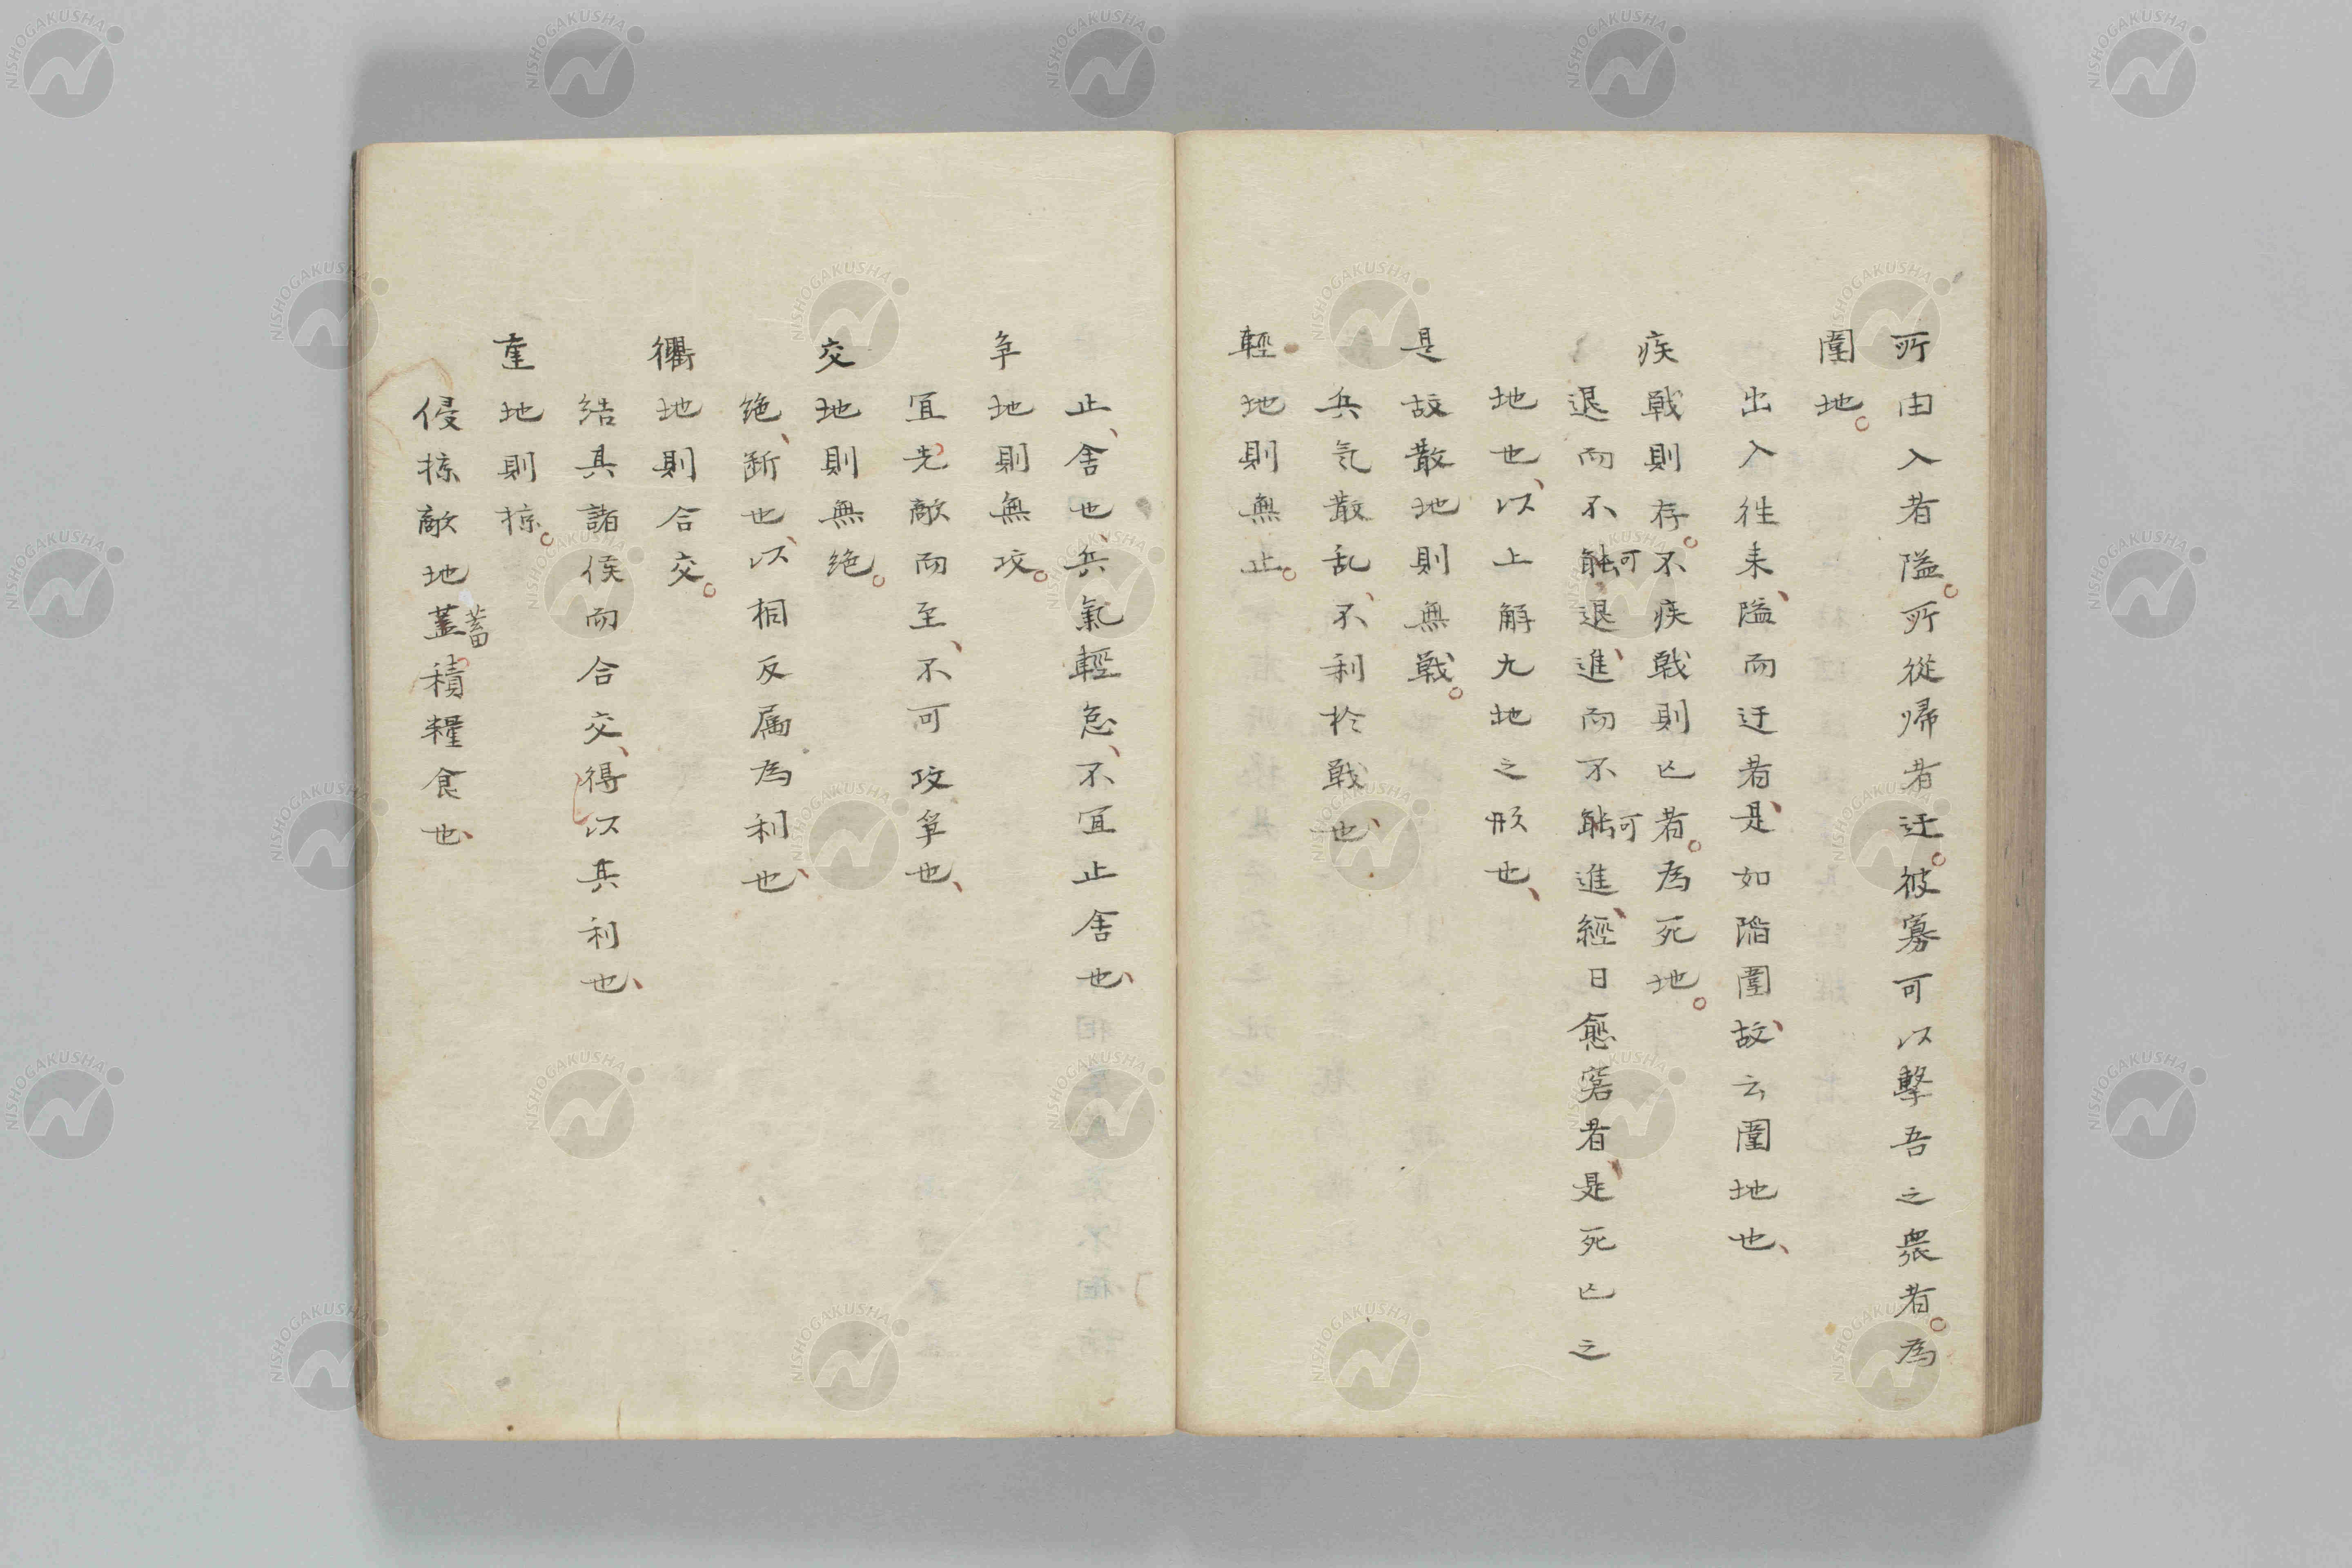 所由入者隘。所從帰者迂。彼寡可以擊吾之衆者。為
圍地。
出入往来、隘而迂者、是如陷圍、故云圍地也、
疾戰則存。不疾戰則亡者。為死地。
退而不能可退、進而不能可進、經日愈窘者、是死亡之
地也、以上解九地之形也、
是故散地則無戰。
兵気散乱、不利於戰也、
輕地則無止。
止、舍也、兵氣輕急、不宜止舍也、
争地則無攻。
宜先敵而至、不可攻爭也、
交地則無绝。
绝、断也、以相反属為利也、
衢地則合交。
結其諸侯而合交、得以其利也、
重地則掠。
侵掠敵地蓋蓄積糧食也、
NISHOGAKUSHA